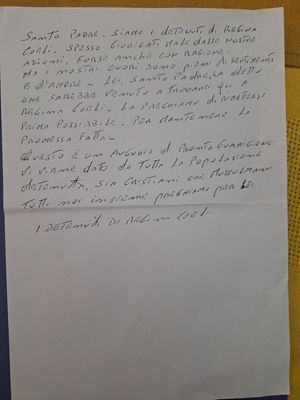 SANTO PADRE. SIAMO I DETENUTI DI REGINA
COELI. SPESSO GIUDICATI MALE DALLE NOSTRE
AZIONI, FORSE ANCHE CON RAGIONE.
MA I NOSTRI CUORI SONO PIENI DI SENTIMENTI
E D'AMORE - LEI, SANTO PADRE, HA DETTO
CHE SAREBBE VENUTO A TROVARCI QUI A
REGINA COELI. LA PREGHIAMO DI RIMETTERSI
PRIMA POSSIBILE. PER MANTENERE LA
PROMESSA FATTA -
QUESTO È UN AUGURIO DI PRONTA GUARIGIONE.
VI VIENE DATO DA TUTTA LA POPOLAZIONE
DETENUTA, SIA CRISTIANI CHE MUSSULMANI
TUTTI NOI INSIEME PREGHIAMO PER LEI.
I DETENUTI DI REGINA COELI.